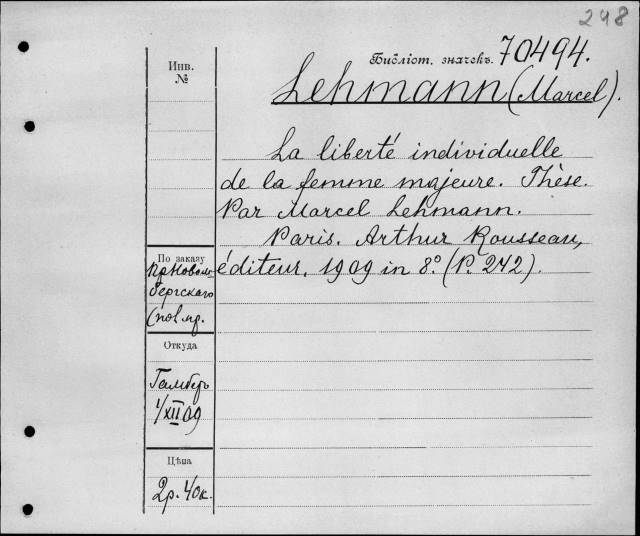 248
Библіот. значекъ. 70494.
Инв.
№
Lehmann (Marcel).
La liberté individuelle
de la femme majeure. Thèse.
Par Marcel Lehmann.
Paris. Arthur Rousseau,
éditeur. 1909 in 8º. (P. 242).
По заказу
бергскаго
Откуда
Гамберъ
1/XII 09
Цѣна
2р. 40к.